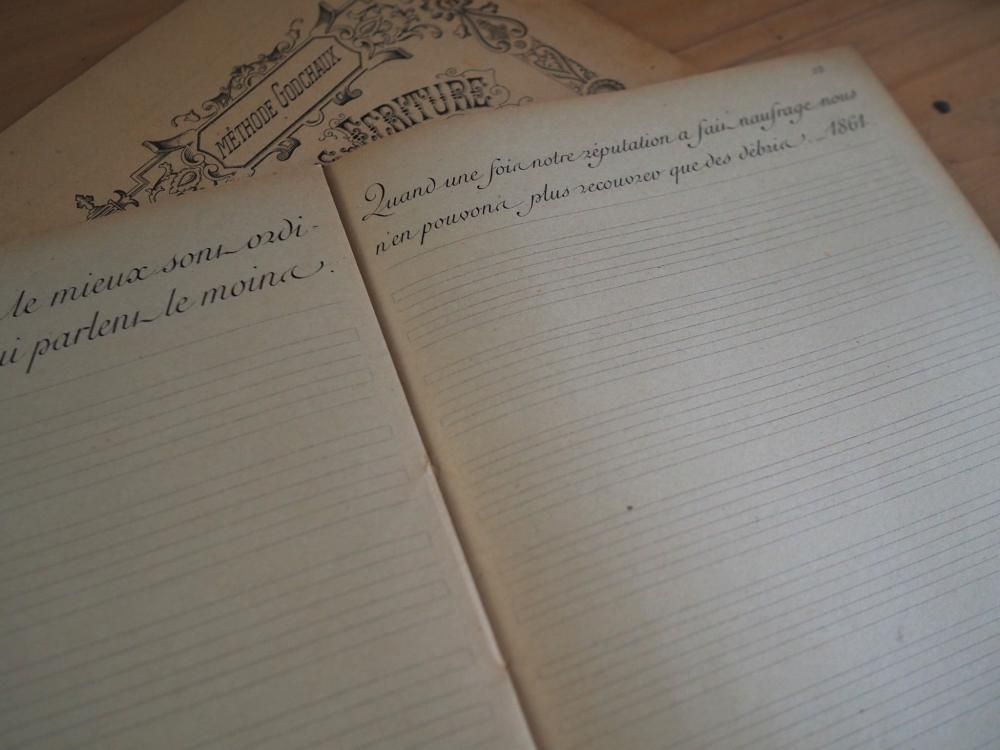 MÉTHODE GODCHAUX
ÉCRITURE
le mieux sont ordi-
ui parlent le moins.
Quand une fois notre réputation a fait naufrage nous
n'en pouvons plus recouvrer que des débris._1861.